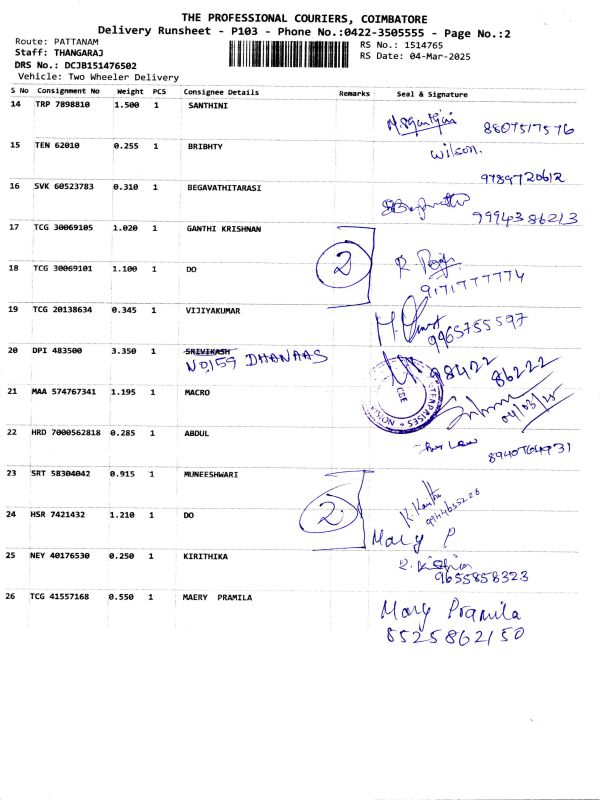 THE PROFESSIONAL COURIERS, COIMBATORE
Delivery Runsheet - P103 - Phone No.:0422-3505555 - Page No.:2
Route: PATTANAM
RS No.: 1514765
Staff: THANGARAJ
RS Date: 04-Mar-2025
DRS No.: DCJB151476502
Vehicle: Two Wheeler Delivery
S No Consignment No Weight PCS Consignee Details Remarks Seal & Signature
14 TRP 7898810 1.500 1 SANTHINI
8807517576
15 TEN 62010 0.255 1 BRIBHTY
Wilson.
9789720612
16 SVK 60523783 0.310 1 BEGAVATHITARASI
9994386213
17 TCG 30069105 1.020 1 GANTHI KRISHNAN
2
18 TCG 30069101 1.100 1 DO
9171777774
19 TCG 20138634 0.345 1 VIJIYAKUMAR
9965755597
20 DPI 483500 3.350 1 SRIVIKASH
NO,159 DHANAAS
98422 86222
21 MAA 574767341 1.195 1 MACRO
CBE
04/03/25
22 HRD 7000562818 0.285 1 ABDUL
8940764931
23 SRT 58304042 0.915 1 MUNEESHWARI
2
9944635228
24 HSR 7421432 1.210 1 DO
Mary P
25 NEY 40176530 0.250 1 KIRITHIKA
9655858323
26 TCG 41557168 0.550 1 MAERY PRAMILA
Mary Pramila
8525862150